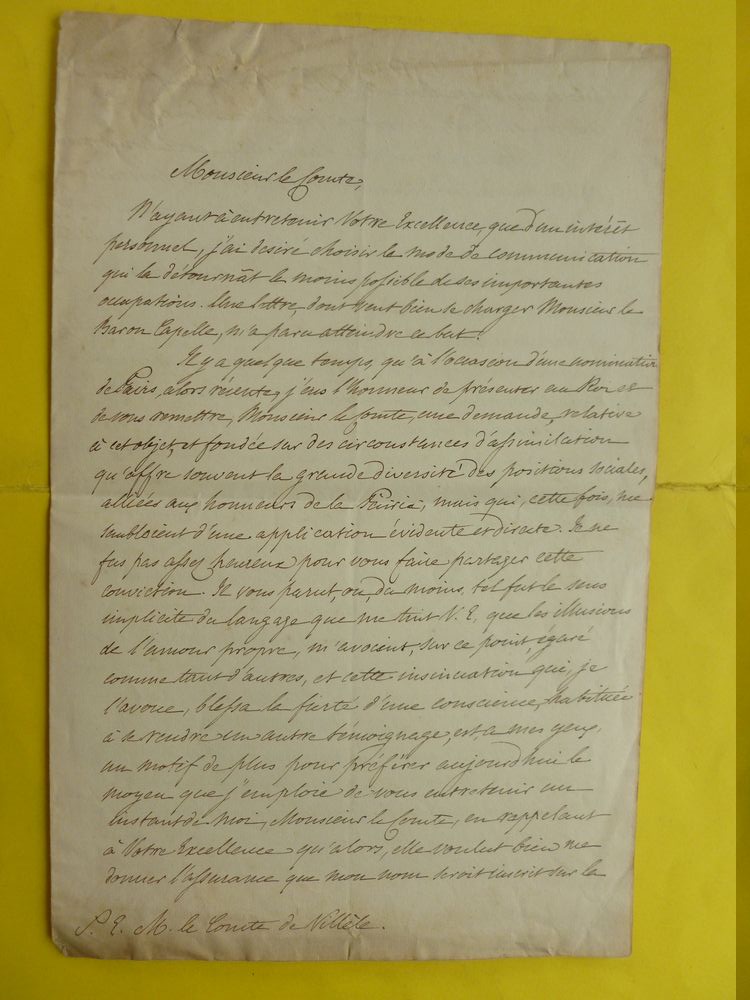 Monsieur le Comte,
N'ayant à entretenir Votre Excellence, que d'un intérêt
personnel, j'ai desiré choisir le mode de communication
qui la détournât le moins possible de ses importantes
occupations. Une lettre, dont veut bien se charger Monsieur le
Baron Capelle, m'a paru atteindre ce but.
Il y a quelque temps, qu'à l'occasion d'une nomination
de Pairs, alors récente, j'eus l'honneur de présenter au Roi et
de vous remettre, Monsieur le Comte, une demande, relative
à cet objet, et fondée sur des circonstances d'assimilation
qu'offre souvent la grande diversité des positions sociales,
alliées aux honneurs de la Pairie, mais qui, cette fois, me
sembloient d'une application évidente et directe. Je ne
fus pas assez heureux pour vous faire partager cette
conviction. Il vous parut, ou, du moins, tel fut le sens
implicite du langage que me tint V. E, que les illusions
de l'amour propre, m'avoient, sur ce point, égaré
comme tant d'autres, et cette insinuation qui, je
l'avoue, blessa la fierté d'une conscience, habituée
à se rendre un autre témoignage, est à mes yeux,
un motif de plus pour préférer aujourd'hui le
moyen que j'emploie de vous entretenir un
instant de moi, Monsieur le Comte, en rappelant
à Votre Excellence qu'alors, elle voulut bien me
donner l'assurance que mon nom seroit inscrit sur la
S. E. M. le Comte de Villèle.